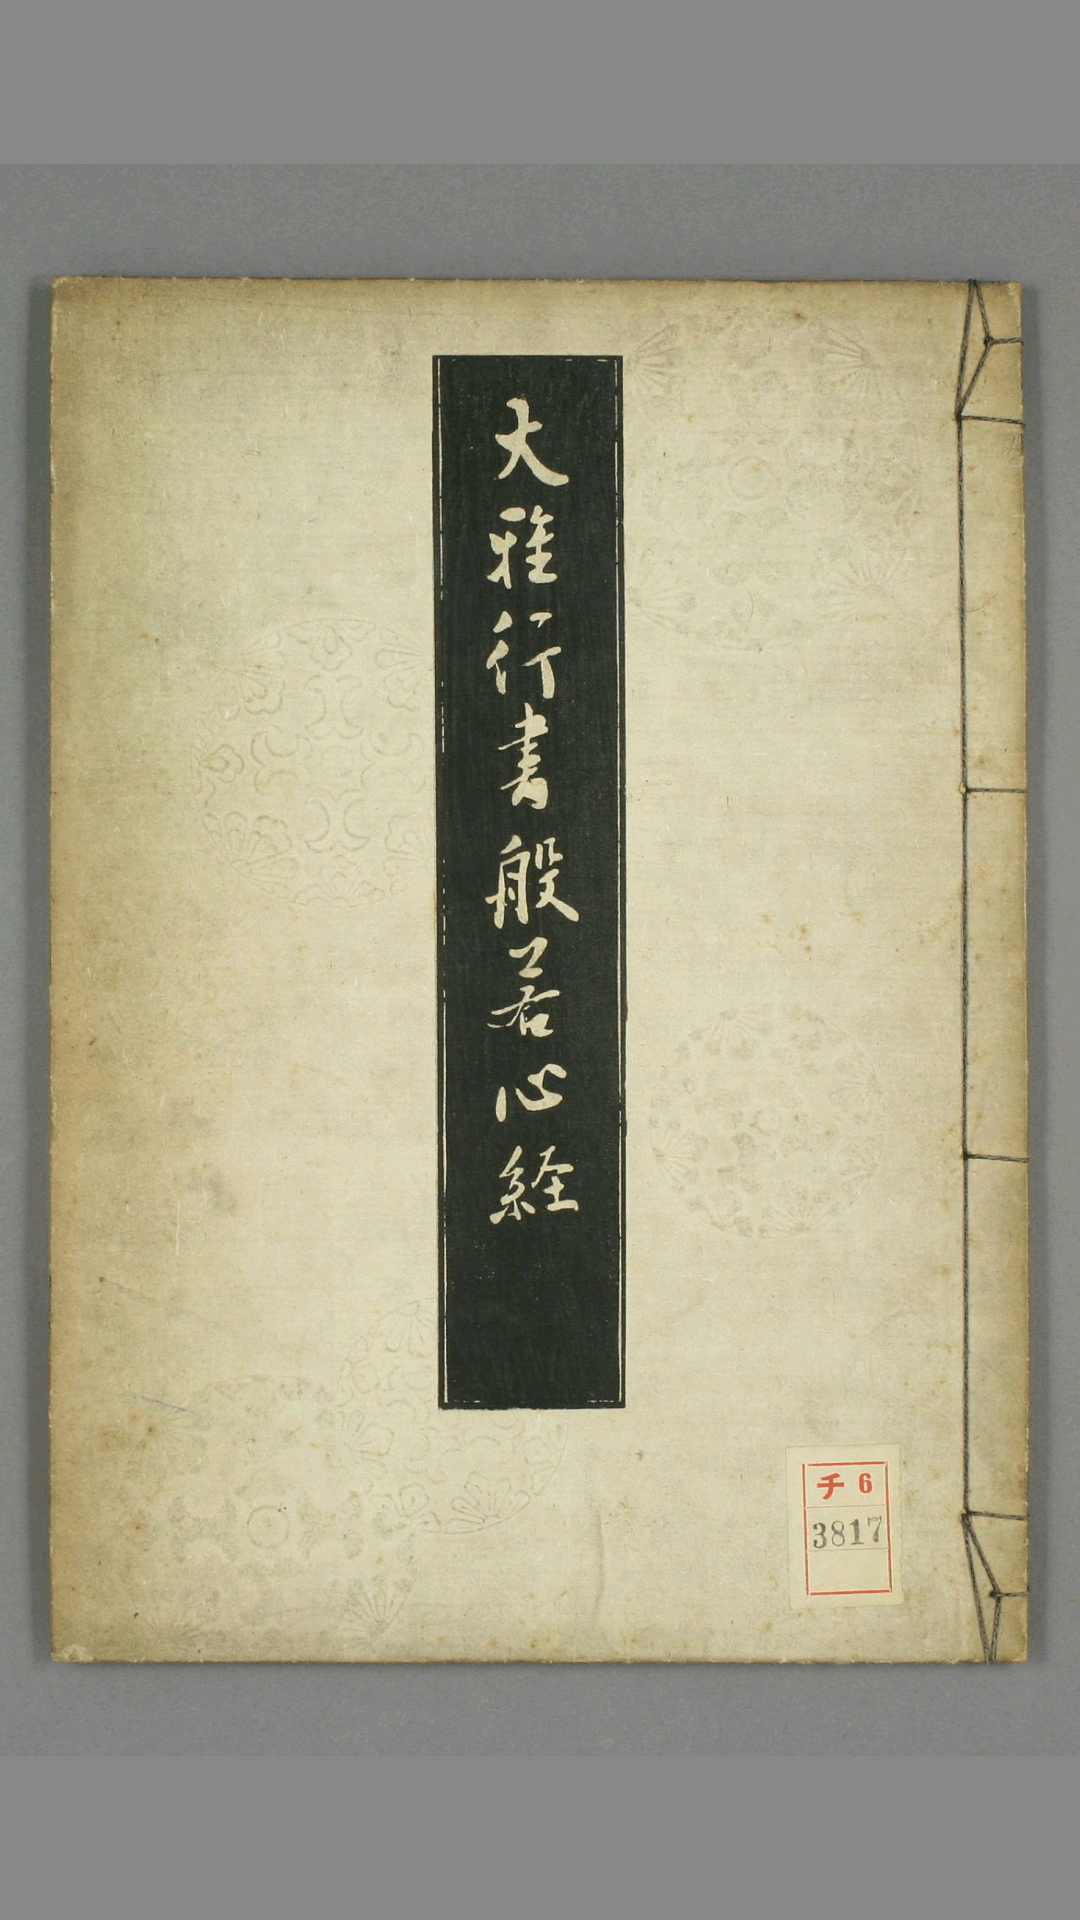 大雅行書般若心経
チ6
3817